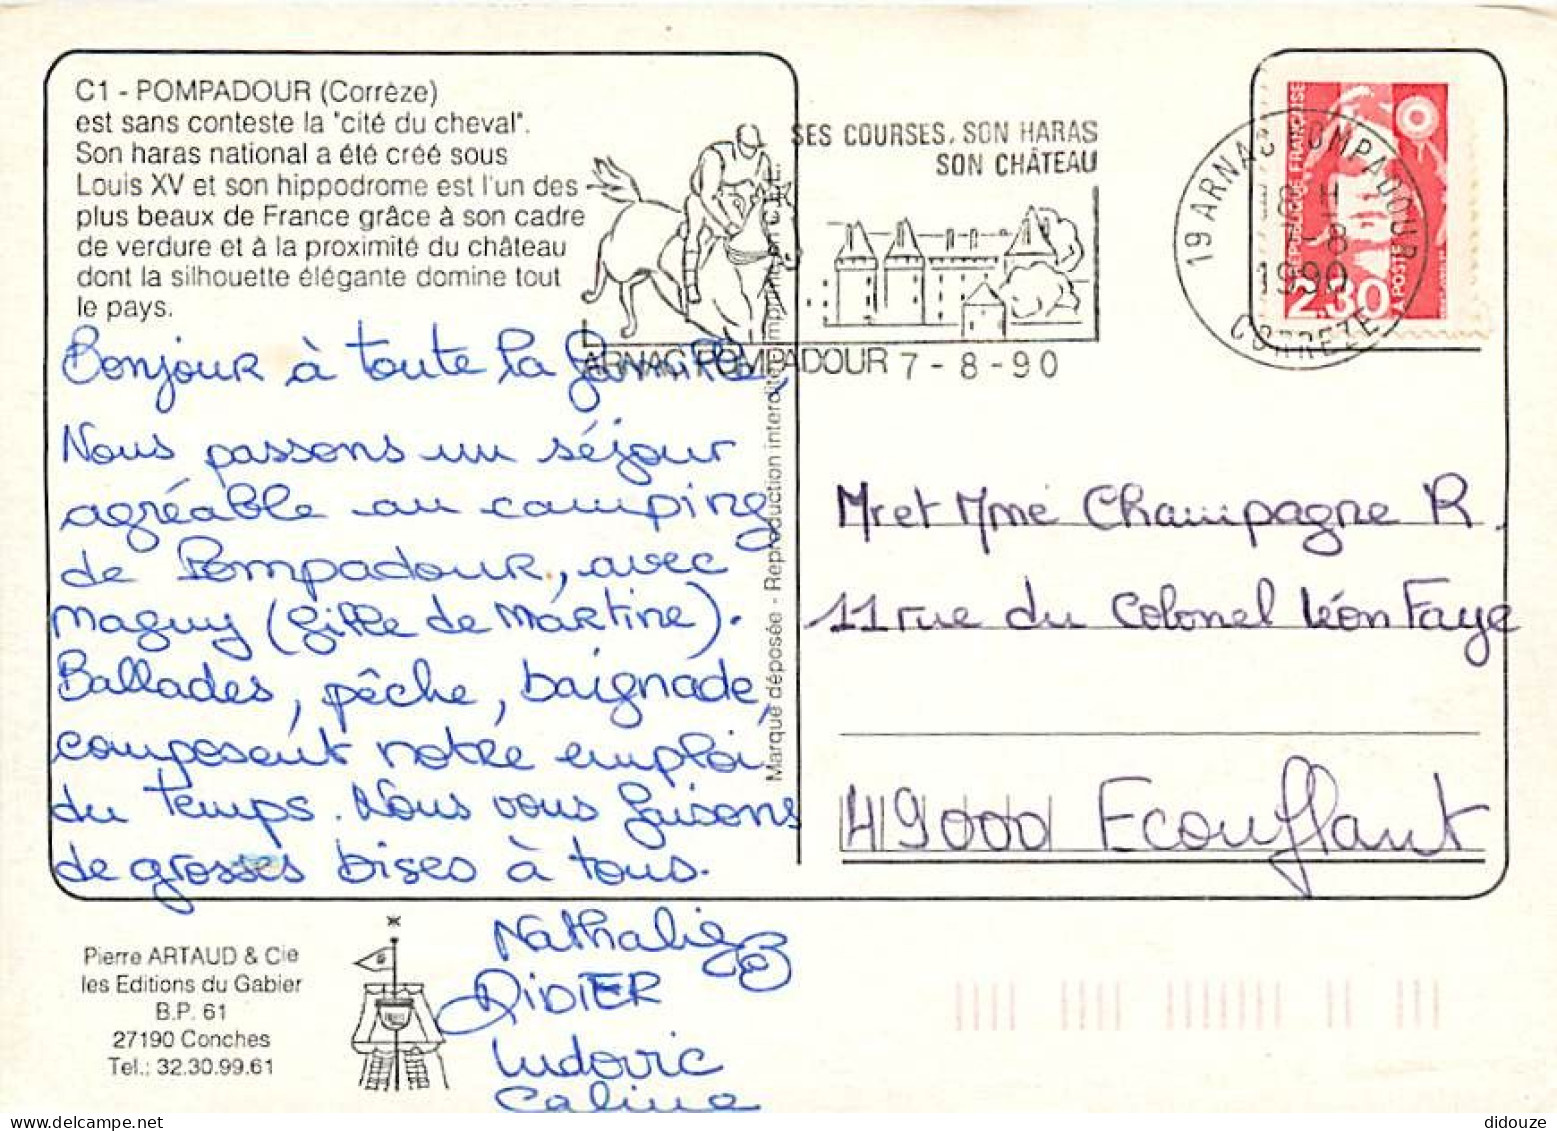 C1 - POMPADOUR (Corrèze)
est sans conteste la "cité du cheval".
Son haras national a été créé sous
Louis XV et son hippodrome est l'un des
plus beaux de France grâce à son cadre
de verdure et à la proximité du château
dont la silhouette élégante domine tout
le pays.
Bonjour à toute la famille,
Nous passons un séjour
agréable au camping
de Pompadour, avec
Maguy (fille de Martine).
Ballades, pêche, baignade,
composent notre emploi
du temps. Nous vous faisons
de grosses bises à tous.
Nathalie
DIDIER
Ludovic
Celine
Pierre ARTAUD & Cie
les Editions du Gabier
B.P. 61
27190 Conches
Tel.: 32.30.99.61
Marque déposée - Reproduction interdite - Imprimé en C.E.E.
SES COURSES, SON HARAS
SON CHÂTEAU
ARNAC POMPADOUR 7-8-90
19 ARNAC POMPADOUR
18 H
7-8
1990
CORREZE
REPUBLIQUE FRANÇAISE
2,30
LA POSTE
Mr et Mme Champagne R.
11 rue du Colonel Léon Faye
49000 Ecouflant
didouze